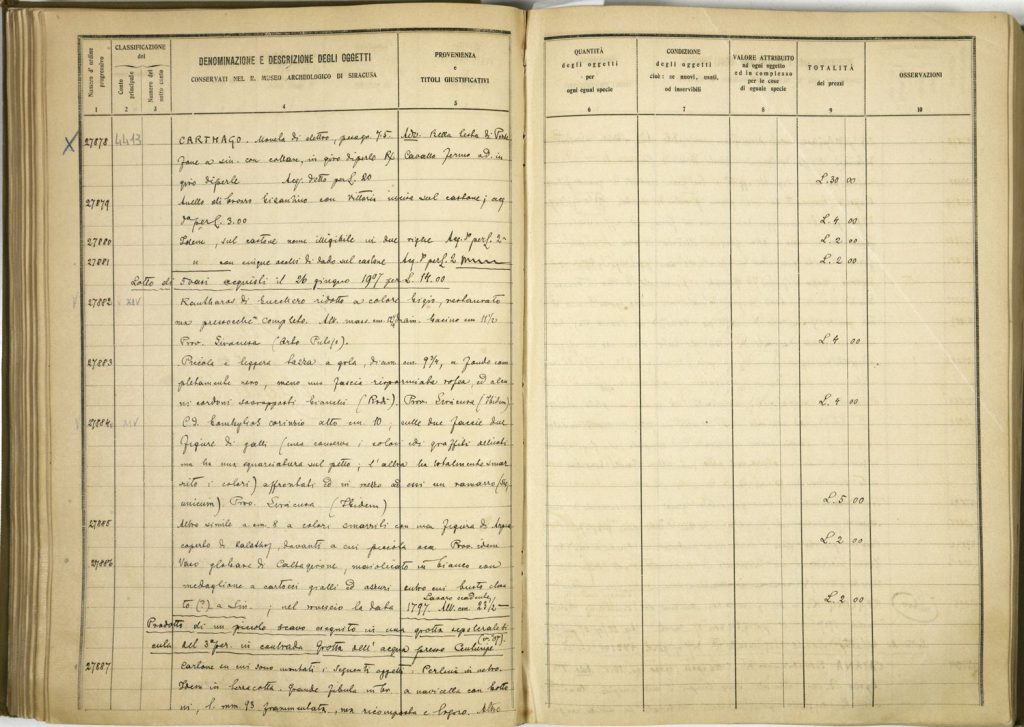 Numero d' ordine progressivo
CLASSIFICAZIONE del
Conto principale
Numero del sotto conto
DENOMINAZIONE E DESCRIZIONE DEGLI OGGETTI
CONSERVATI NEL R. MUSEO ARCHEOLOGICO DI SIRACUSA
PROVENIENZA
e
TITOLI GIUSTIFICATIVI
1 2 3 4 5
QUANTITÀ
degli oggetti
per
ogni egual specie
6
CONDIZIONE
degli oggetti
cioè: se nuovi, usati,
od inservibili
7
VALORE ATTRIBUITO
ad ogni oggetto
ed in complesso
per le cose
di eguale specie
8
TOTALITÀ
dei prezzi
9
OSSERVAZIONI
10
X 27878 4413 CARTHAGO. Moneta di elettro, pesa gr. 7.5 Adv. Bella testa di Perse
fone a sin. con collana, in giro di perle R) Cavallo fermo ad. in
giro di perle Acq. detto per £. 20 L. 30 00
27879 Anello di bronzo bizantino con Vittoria incisa sul castone; acq
per £. 3.00 L. 4 00
27880 Idem, sul castone nome illigibile in due righe Acq. per £. 2 L. 2 00
27881 " con cinque occhi di dado sul castone Acq. per £. 2 L. 2 00
Lotto di vasi acquisti il 26 giugno 1907 per L. 14.00
27882 XIV Kantharos di bucchero ridotto a colore bigio, restaurato
ma pressochè completo. Alt. mass. cm. bacino cm. 11 1/2
Prov. Siracusa (Arbo ) L. 4 00
27883 Piccola e leggera tazza a gola, diam. cm. 9 3/4, a fondo com
pletamente nero, meno una fascia risparmiata rossa, ed alcu
ni cordoni sovrapposti bianchi (Rodi). Prov. Siracusa (Ibidem) L. 4 00
27884 XIV C.d. bombylios corinzio alto cm. 10, sulle due faccie due
figure di galli (una conserva i colori ed i graffiti delicati
ma ha una squarciatura sul petto; l'altra ha totalmente smar
rito i colori) affrontati ed in mezzo ad essi un ramarro
unicum). Prov. Siracusa (Ibidem) L. 5 00
27885 Altro simile a cm. 8 a colori smarriti con una figura di
coperto di kalathos, davanti a cui piccola oca Prov. idem L. 2 00
27886 Vaso globare di Caltagirone, maiolicato in bianco con
medaglione a cartocci gialli ed azzurri entro cui busto
to (?) a sin.; nel rovescio la data 1797. Lavoro scadente, Alt. cm. 23 1/2 L. 2 00
Prodotti di un piccolo scavo eseguito in una grotta sepolcrale
del 3° per. in contrada Grotta dell' acqua presso Centuripe
27887 Cartone su cui sono montati i seguenti oggetti: Perlina in vetro.
Idem in terracotta. Grande fibula in br. a navicella con botto
ni, l. mm. 93 frammentata, ma ricomposta e logora. Altro